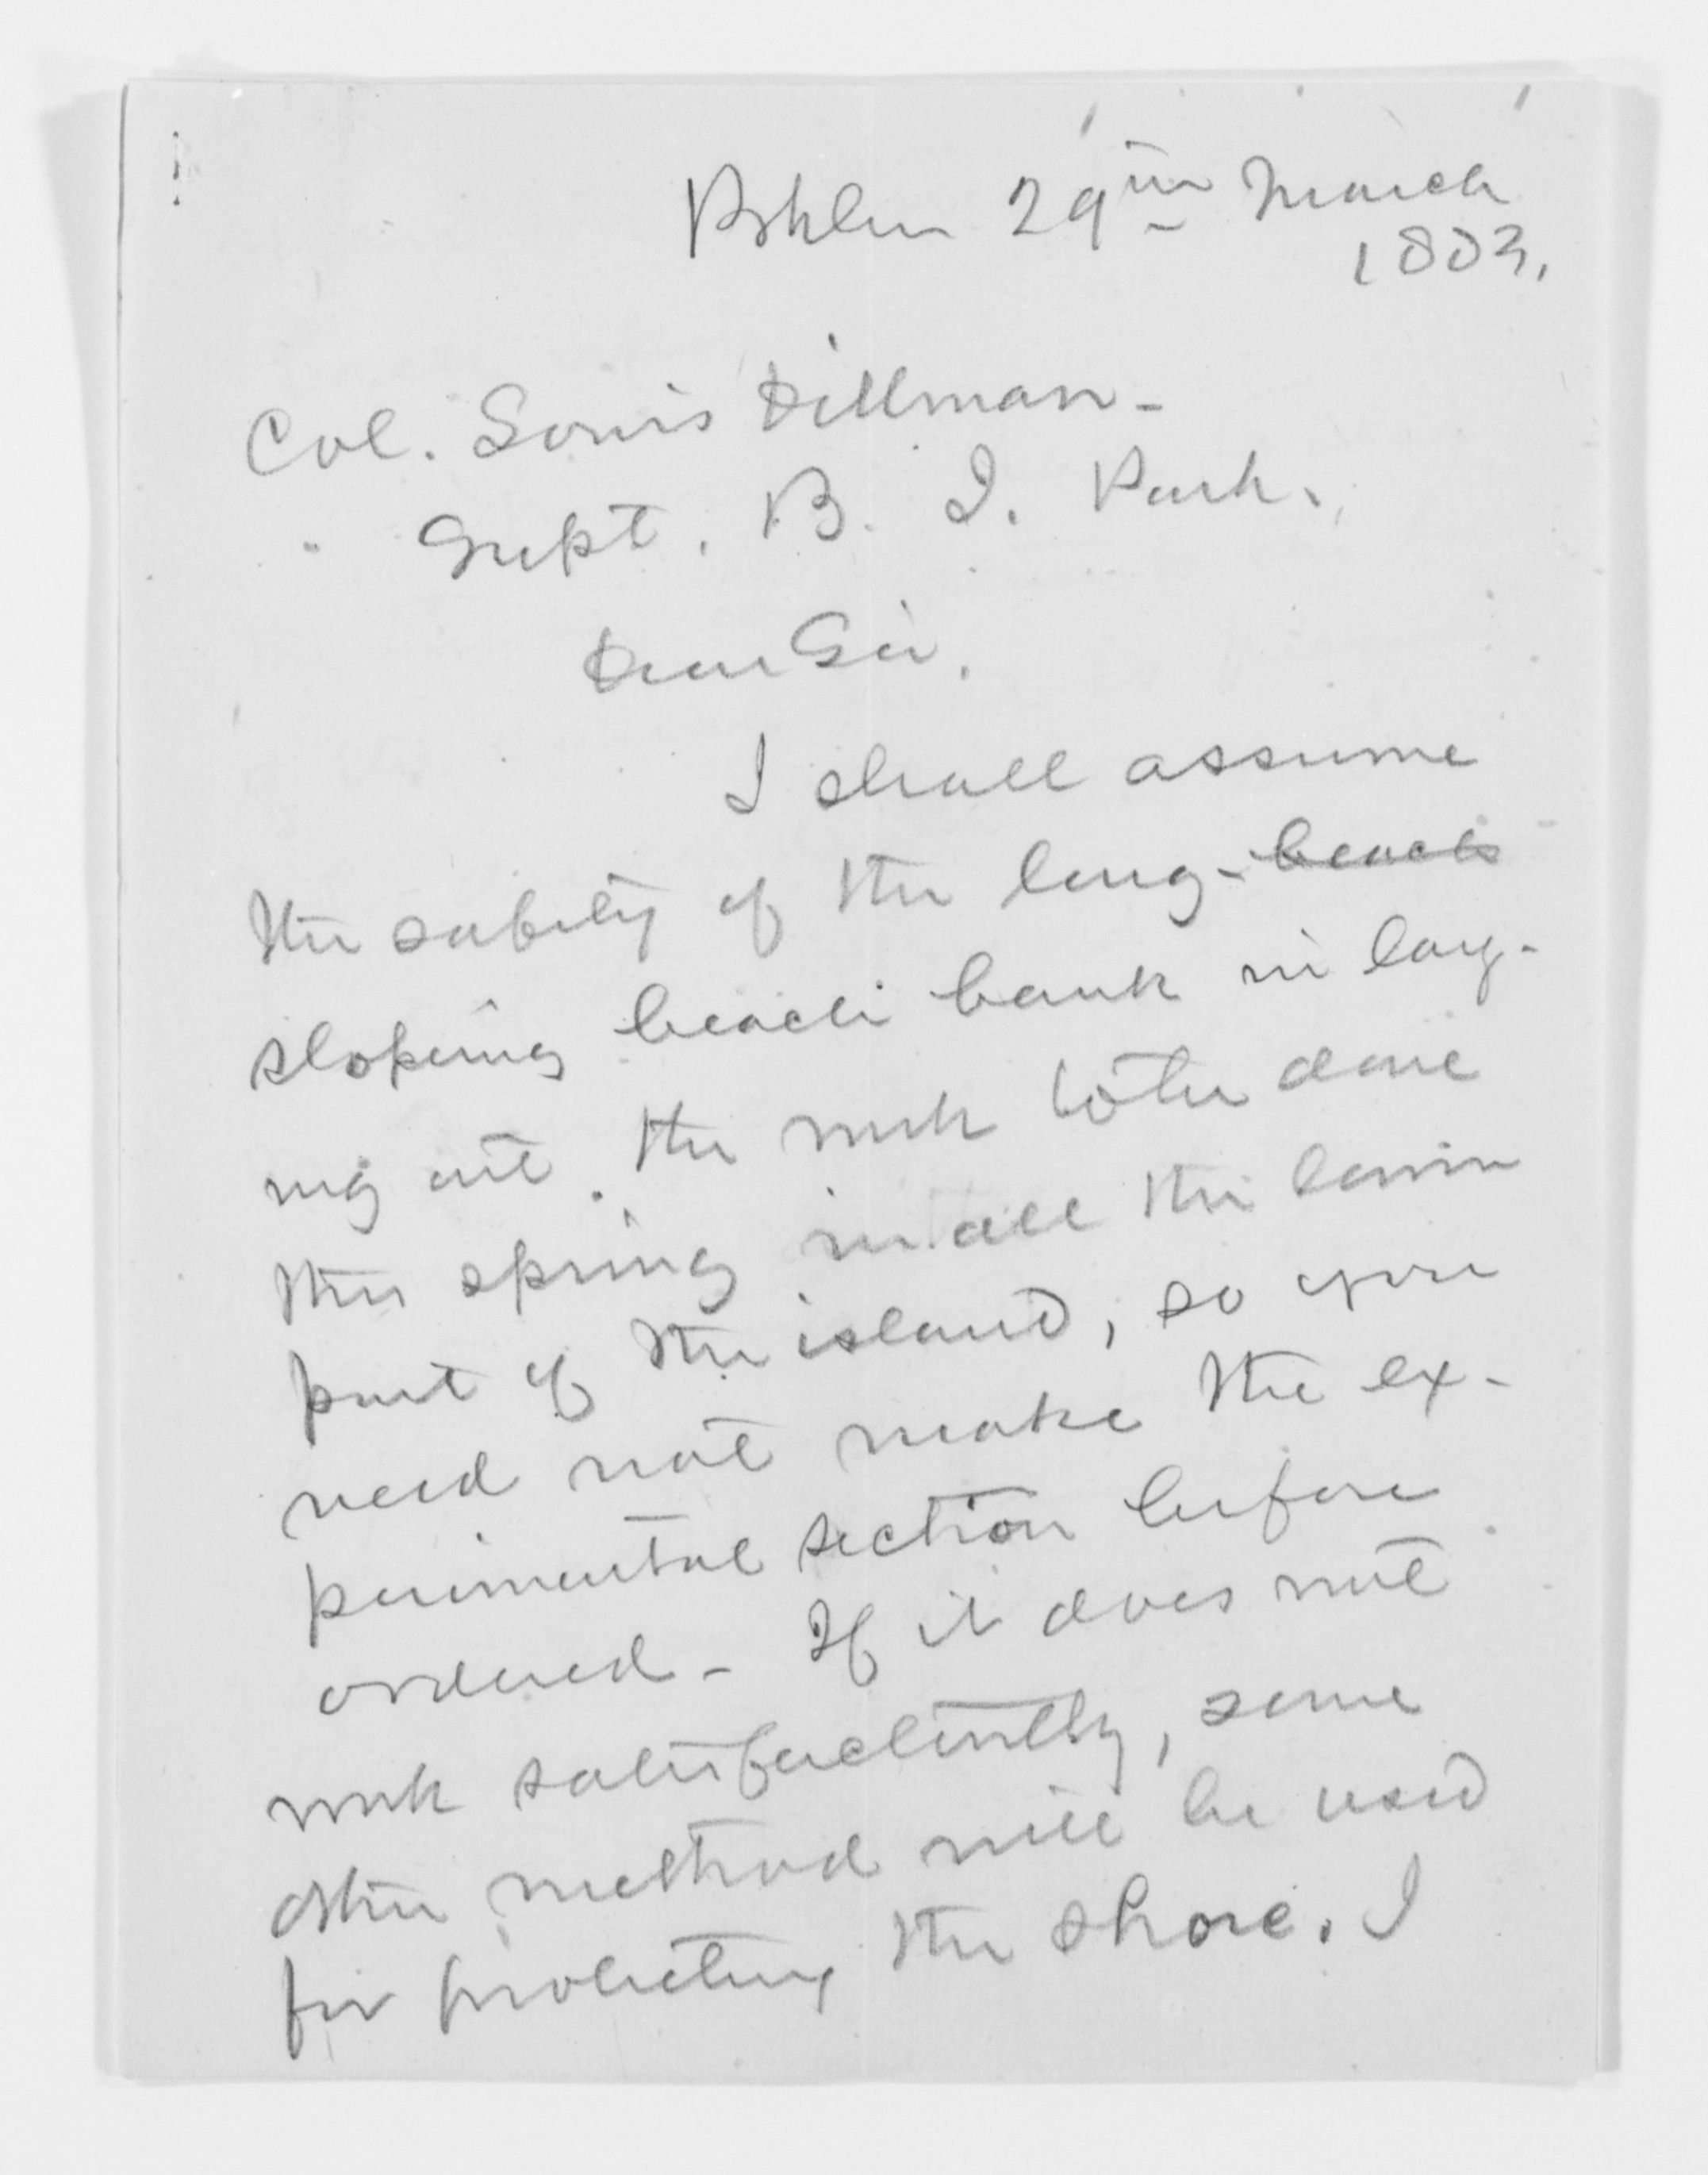 Bkln 29th March
1883.
Col. Louis Dillman -
Supt. B. I. Park.
Dear Sir,
I shall assume
the safety of the long- beach
sloping beach bank in lay-
ing out the work to be done
this spring in all the lower
part of the island, so you
need not make the ex-
perimental section before
ordered - If it does not
work satisfactorily, some
other method will be used
for protecting the shore. I